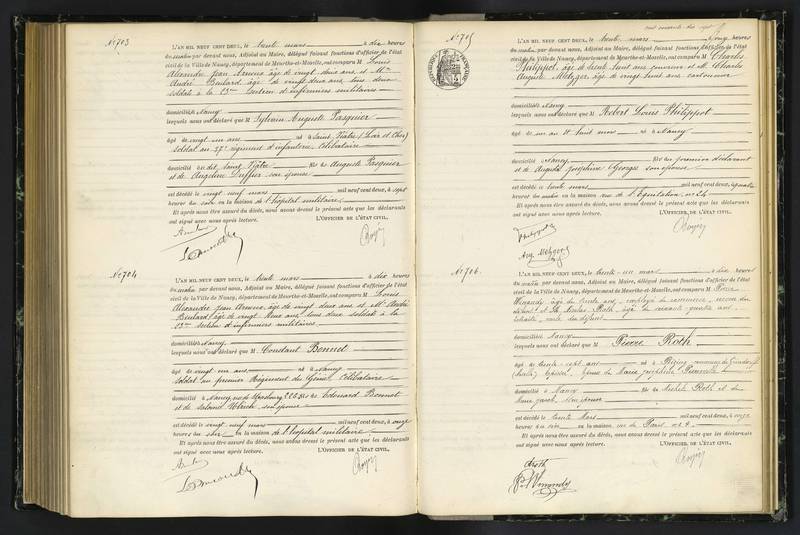 N° 703
L'AN MIL NEUF CENT DEUX, le trente mars à dix heures
du matin par devant nous, Adjoint au Maire, délégué faisant fonctions d'officier de l'état
civil de la Ville de Nancy, département de Meurthe-et-Moselle, ont comparu M Louis
Alexandre Jean âgé de vingt deux ans et Mr
André Beulard âgé de vingt deux ans, tous deux
soldat à la 23me section d'infirmiers militaires
domiciliés Nancy
lesquels nous ont déclaré que M Sylvain Auguste Pasquier
âgé de vingt un ans né à Saint Viâtre (Loir et Cher)
soldat au 37e régiment d'infanterie, Célibataire
domicilié au dit Saint Viâtre fils de Auguste Pasquier
et de Angeline son épouse
est décédé le vingt neuf mars mil neuf cent deux, à sept
heures du soir en la maison de l'hôpital militaire
Et après nous être assuré du décès, nous avons dressé le présent acte que les déclarants
ont signé avec nous après lecture. L'OFFICIER DE L'ÉTAT CIVIL,
N° 704
L'AN MIL NEUF CENT DEUX, le trente mars à dix heures
du matin par devant nous, Adjoint au Maire, délégué faisant fonctions d'officier de l'état
civil de la Ville de Nancy, département de Meurthe-et-Moselle, ont comparu M Louis
Alexandre Jean âgé de vingt deux ans et Mr André
Beulard âgé de vingt deux ans, tous deux soldat à la
23me section d'infirmiers militaires
domiciliés Nancy
lesquels nous ont déclaré que M Constant Bonnet
âgé de vingt un ans né à Nancy
soldat au premier Régiment du Génie, Célibataire
domicilié à Nancy, rue de Strasbourg fils de Edouard Bonnet
et de son épouse
est décédé le vingt neuf mars mil neuf cent deux, à onze
heures du soir en la maison de l'hôpital militaire
Et après nous être assuré du décès, nous avons dressé le présent acte que les déclarants
ont signé avec nous après lecture. L'OFFICIER DE L'ÉTAT CIVIL,
N° 705
L'AN MIL NEUF CENT DEUX, le trente mars à onze heures
du matin par devant nous, Adjoint au Maire, délégué faisant fonctions d'officier de l'état
civil de la Ville de Nancy, département de Meurthe-et-Moselle, ont comparu M Charles
Philippot, âgé de trente huit ans et M Charles
Auguste Metzger âgé de vingt huit ans cartonnier
domiciliés Nancy
lesquels nous ont déclaré que M Robert Louis Philippot
âgé de un an et huit mois né à Nancy
domicilié Nancy fils de premier déclarant
et de Augusta Joséphine Georges son épouse
est décédé le trente mars mil neuf cent deux, à quatre
heures du matin en la maison rue de l'Equitation n° 24
Et après nous être assuré du décès, nous avons dressé le présent acte que les déclarants
ont signé avec nous après lecture. L'OFFICIER DE L'ÉTAT CIVIL,
Philippot
Aug. Metzger
N° 706
L'AN MIL NEUF CENT DEUX, le trente un mars à dix heures
du matin par devant nous, Adjoint au Maire, délégué faisant fonctions d'officier de l'état
civil de la Ville de Nancy, département de Meurthe-et-Moselle, ont comparu M
âgé de trente ans, employé de commerce, neveu du
défunt et Nicolas Roth, âgé de soixante quatre ans
du défunt
domiciliés Nancy
lesquels nous ont déclaré que M Pierre Roth
âgé de trente sept ans né à
époux de Marie Joséphine
domicilié à Nancy fils de Michel Roth et de
Marie Jacob, son épouse
est décédé le trente Mars mil neuf cent deux, à onze
heures du soir en la maison rue de Paris n° 8
Et après nous être assuré du décès, nous avons dressé le présent acte que les déclarants
ont signé avec nous après lecture. L'OFFICIER DE L'ÉTAT CIVIL,
Roth